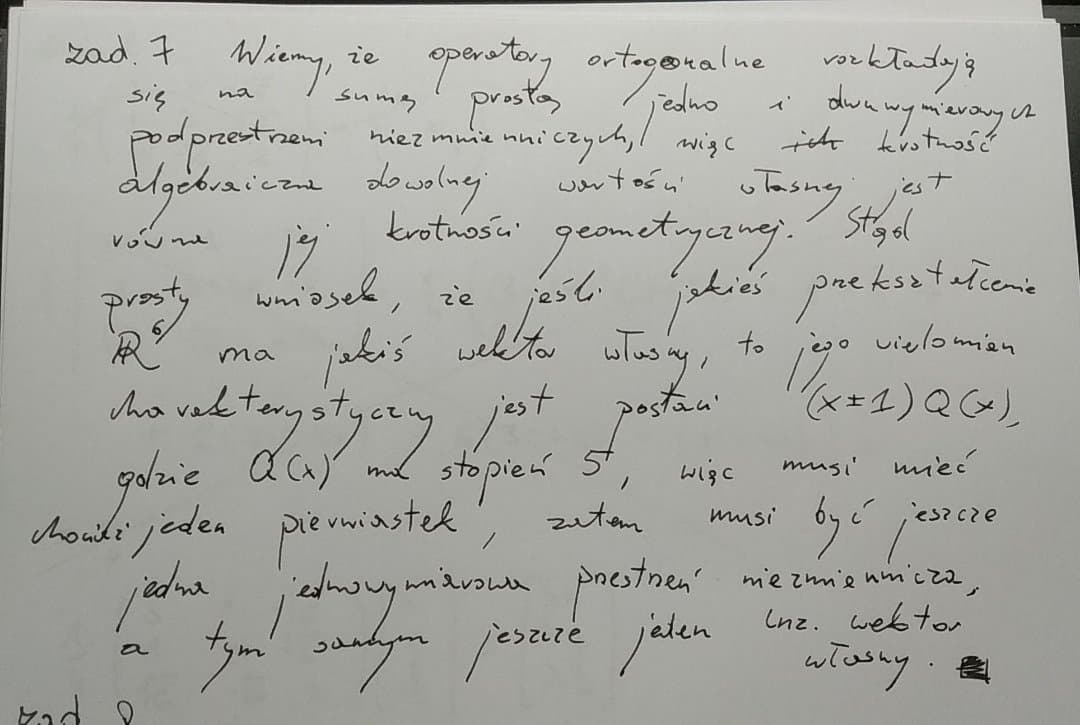 zad. 7 Wiemy, że operatory ortogonalne rozkładają
się na sumę prostą jedno i dwuwymiarowych
podprzestrzeni niezmienniczych, więc ich krotność
algebraiczna dowolnej wartości własnej jest
równa jej krotności geometrycznej. Stąd
prosty wniosek, że jeśli jakieś przekształcenie
ℝ⁶ ma jakiś wektor własny, to jego wielomian
charakterystyczny jest postaci (x±1)Q(x),
gdzie Q(x) ma stopień 5, więc musi mieć
choćiż jeden pierwiastek, zatem musi być jeszcze
jedna jednowymiarowa przestrzeń niezmiennicza,
a tym samym jeszcze jeden lnz. wektor
własny. ■
zad 8